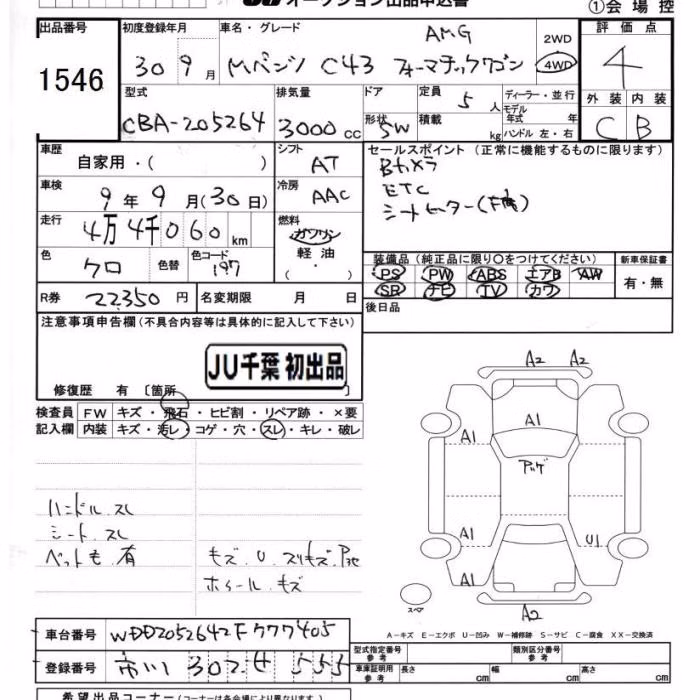 オークション出品申込書
①会場控
出品番号 1546
初度登録年月 30 9月
車名・グレード AMG
Mベンツ C43 フォーマチックワゴン
2WD
4WD
評価点 4
外装 内装
C B
型式 CBA-205264
排気量 3000cc
ドア
形状 SW
定員 5人
積載 kg
ディーラー・並行
モデル
年式 年
ハンドル 左・右
車歴 自家用・( )
シフト AT
セールスポイント (正常に機能するものに限ります)
Bカメラ
ETC
シートヒーター(F席)
車検 9年9月(30日)
冷房 AAC
走行 4万4千060km
燃料 ガソリン
軽油
( ・ )
色 クロ 色替 色コード 197
装備品 (純正品に限り○をつけてください)
PS PW ABS エアB AW
SR ナビ TV カワ
新車保証書
有・無
R券 22350円 名変期限 月 日
後日品
注意事項申告欄 (不具合内容等は具体的に記入して下さい)
JU千葉 初出品
修復歴 有 〔箇所 〕
検査員 FW キズ・飛石・ヒビ割・リペア跡・×要
記入欄 内装 キズ・汚レ・コゲ・穴・スレ・キレ・破レ
ハンドル.スレ
シート.スレ
ペット毛.有
キズ.U.スリキズ.
ホイール.キズ
A2 A2
A1
A1
アゲ
A1 U1
A1
スペア
A2
A-キズ E-エクボ U-凹み W-補修跡 S-サビ C-腐食 XX-交換済
車台番号 WDD2052642F777405
登録番号 市川 302 555
型式指定番号 参考
類別区分番号 参考
車庫証明用 参考 長さ cm 幅 cm 高さ cm
希望出品コーナー (コーナーは各会場により異なります)